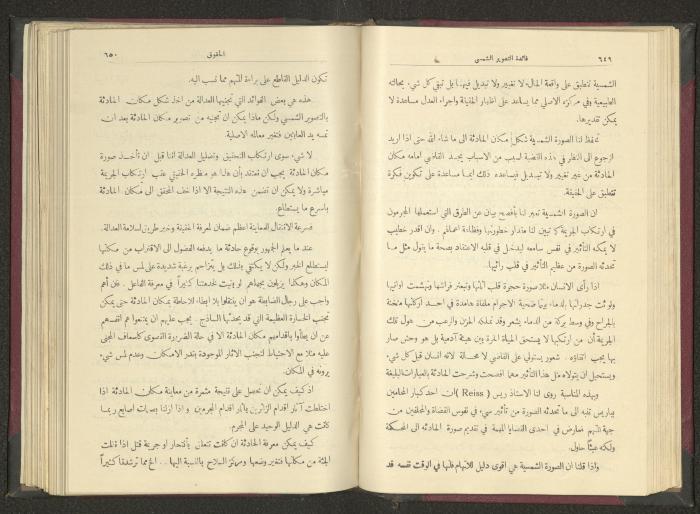 ٦٤٩ فائدة التصوير الشمسي
الشمسية تنطبق على واقعة الحال لا تغيير ولا تبديل فيها بل تبقي كل شيء بحالته
الطبيعية وفي مركزه الاصلي مما يساعد على اظهار الحقيقة واجراء العدل مساعدة لا
يمكن تقديرها.
تحفظ لنا الصورة الشمسية شكل مكان الحادثة الى ما شاء الله حتى اذا اريد
الرجوع الى النظر في هذه القضية لسبب من الاسباب يجد القاضي امامه مكان
الحادثة من غير تغيير ولا تبديل فيساعده ذلك ايما مساعدة على تكوين فكرة
تنطبق على الحقيقة.
ان الصورة الشمسية تعبر لنا بأفصح بيان عن الطرق التي استعملها المجرمون
في ارتكاب الجريمة كما تبين لنا مقدار خطورتها وفظاعة اعمالهم. وان اقدر خطيب
لا يمكنه التأثير في نفس سامعه ليدخل في قلبه الاعتقاد بصحة ما يقول مثل ما
تحدثه الصورة من عظيم التأثير في قلب رائيها.
اذا رأى الانسان مثلا صورة حجرة قلب اثاثها وتبعثر فراشها وتهشمت اوانيها
ولوثت جدرانها بالدماء يرى ضحية الاجرام ملقاة هامدة في احد اركانها مثخنة
بالجراح وفي وسط بركة من الدماء يشعر وقد تملكه الحزن والرعب من هول تلك
الجريمة أن من ارتكبها لا يستحق الحياة المرة بين هيئة آدمية بل هو وحش ضار
بها يجب اتقاؤه. شعور يستولي على القاضي لا محالة لانه انسان قبل كل شيء
ويستحيل ان يتولاه مثل هذا التأثير مهما افصحت وشرحت الحادثة بالعبارات البليغة
وبهذه المناسبة روى لنا الاستاذ ريس (Reiss) ان احد كبار المحامين
بباريس تنبه الى ما تحدثه الصورة من تأثير سيء في نفوس القضاة والمحلفين من
جهة المتهم فعارض في احدى القضايا المهمة في تقديم صورة الحادثه الى المحكمة
ولكنه عبثاً حاول.
واذا قلنا ان الصورة الشمسية هي اقوى دليل للاتهام فلها في الوقت نفسه قد
الحقوق ٦٥٠
تكون الدليل القاطع على براءة المتهم مما نسب اليه.
هذه هي بعض الفوائد التي تجنيها العدالة من اخذ شكل مكان الحادثة
بالتصوير الشمسي ولكن ماذا يمكن أن تجنيه من تصوير مكان الحادثة بعد ان
تمسه يد العابثين فتغير معالمه الاصلية.
لا شيء سوى ارتباك التحقيق وتضليل العدالة اننا قبل ان نأخذ صورة
مكان الحادثة يجب ان نعتقد بأن هذا هو منظره الحقيقي عقب ارتكاب الجريمة
مباشرة ولا يمكن ان تضمن هذه النتيجة الا اذا خف المحقق الى مكان الحادثة
باسرع ما يستطاع.
فسرعة الانتقال للمعاينة اعظم ضمان لمعرفة الحقيقة وخير طريق لسلامة العدالة.
عند ما يعلم الجمهور بوقوع حادثة ما يدفعه الفضول الى الاقتراب من مكانها
ليستطلع الخبر ولكن لا يكتفي بذلك بل يتزاحم برغبة شديدة على لمس ما في ذلك
المكان وهكذا يزيلون بجهلهم او يعبثون بما خدمنا كثيراً في معرفة الفاعل. فمن أهم
واجب على رجال الضابطة هو ان ينتقلوا بلا ابطاء للاحاطة بمكان الحادثة حتى يمكن
تجنب الخسارة العظيمة التي قد يحدثها الساذج. يجب عليهم ان يمتنعوا هم انفسهم
عن ان يطأوا باقدامهم مكان الحادثة الا في حالة الضرورة القصوى كاسعاف المجني
عليه مثلا مع الاحتياط لتجنب الاثار الموجودة بقدر الامكان وعدم لمس شيء
يرونه في المكان.
اذ كيف يمكن أن نحصل على نتيجة مثمرة من معاينة مكان الحادثة اذا
اختلطت آثار اقدام الزائرين باثار اقدام المجرمين. و اذا ازلنا بصمات اصابع ربما
كانت هي الدليل الوحيد على المجرم.
كيف يمكن معرفة الحادثة ان كانت تتعلق بأنتحار او جريمة قتل اذا نقلت
الجثة من مكانها فتغير وضعها ومركز السلاح بالنسبة اليها... الخ مما ترشدنا كثيراً